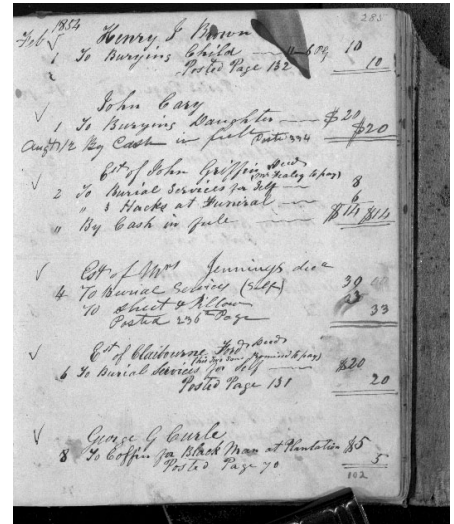 283
1854
Feb √ Henry J Brown
1 To Burying Child 10
2 Posted Page 132 10
√ John Cary
1 To Burying Daughter $20
Augt 12 By Cash in full Posted 334 $20
√ Est of John Griffin Decd
2 To Burial Services for Self 8
" 3 Hacks at Funeral 6
" By Cash in full $14 $14
√ Est of Mrs Jennings decd
4 To Burial Services (Self) 30
To Sheet & Pillow 3
Posted 236th Page 33
√ Est of Claibourne Ford Decd
(his Son promised to pay)
6 To Burial Services for Self $20
Posted Page 131 20
√ George G Curle
8 To Coffin for Black Man at Plantation $5
Posted Page 70 5
102